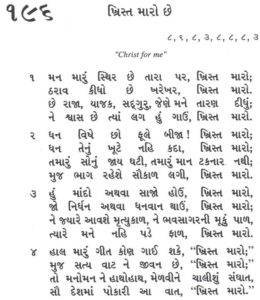 ૧૯૬
ખ્રિસ્ત મારો છે
૮, ૬, ૮, ૩, ૮, ૮, ૮, ૩
"Christ for me"
૧ મન મારું સ્થિર છે તારા પર, ખ્રિસ્ત મારો;
ઠરાવ કીધો છે ખરેખર, ખ્રિસ્ત મારો;
છે રાજા, યાજક, સદ્ગુરુ, જેણે મને તારણ દીધું;
ને શ્વાસ છે ત્યાં લગ હું ગાઉં, ખ્રિસ્ત મારો.
૨ ધન વિષે છો ફૂલે બીજા! ખ્રિસ્ત મારો;
ધન તેનું ખૂટે નહિ કદા, ખ્રિસ્ત મારો;
તમારું સોનું જાય ઘટી, તમારું માન ટકનાર નથી;
મુજ ભાગ રહેશે સૌકાળ લગી, ખ્રિસ્ત મારો.
૩ હું માંદો અથવા સાજો હોઉં, ખ્રિસ્ત મારો;
જો નિર્ધન અથવા ધનવાન થાઉં, ખ્રિસ્ત મારો;
ને જ્યારે આવશે મૃત્યુકાળ, ને ભવસાગરની મૂકું પાળ,
ત્યારે મને નહિ પડે ફાળ, ખ્રિસ્ત મારો.
૪ હાલ મારું ગીત કોણ ગાઈ શકે, "ખ્રિસ્ત મારો;"
મુજ સત્ય વાટ ને જીવન છે, "ખ્રિસ્ત મારો;"
તો મનોમન ને હાથોહાથ, મેળવીને ચાલીશું સંઘાત,
સૌ દેશમાં પોકારી આ વાત, "ખ્રિસ્ત મારો."